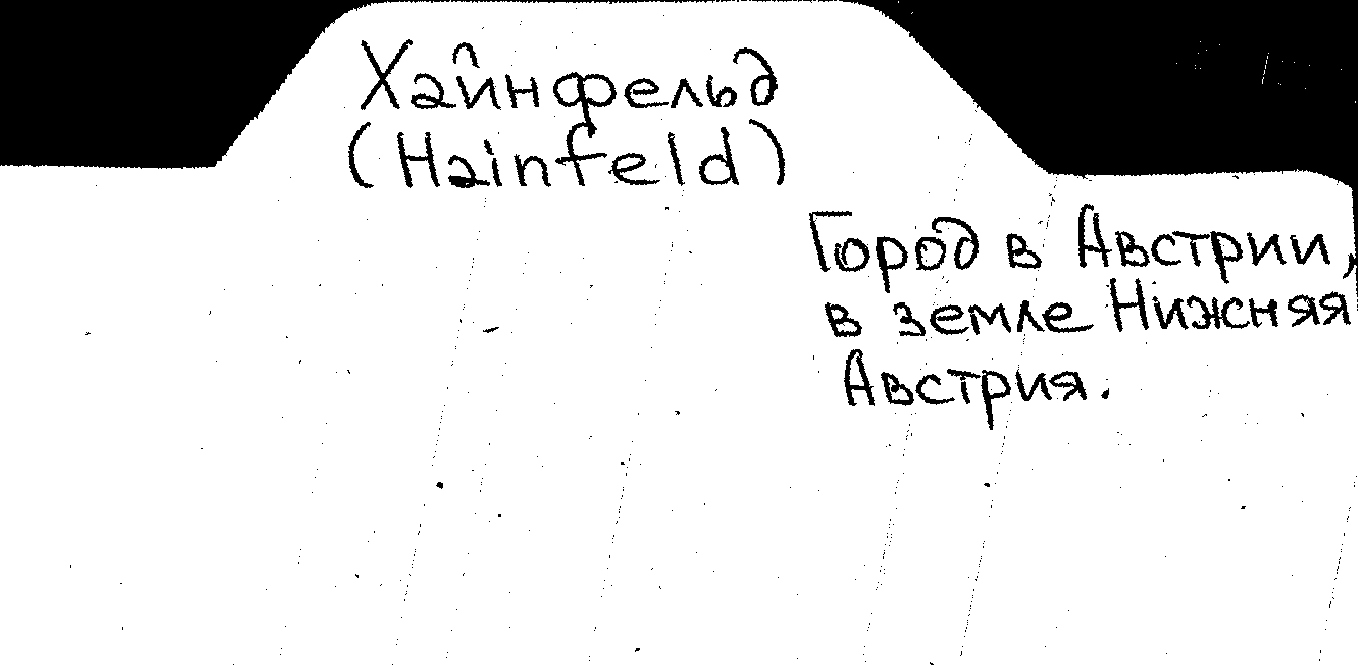 Хайнфельд
(Hainfeld)
Город в Австрии,
в земле Нижняя
Австрия.